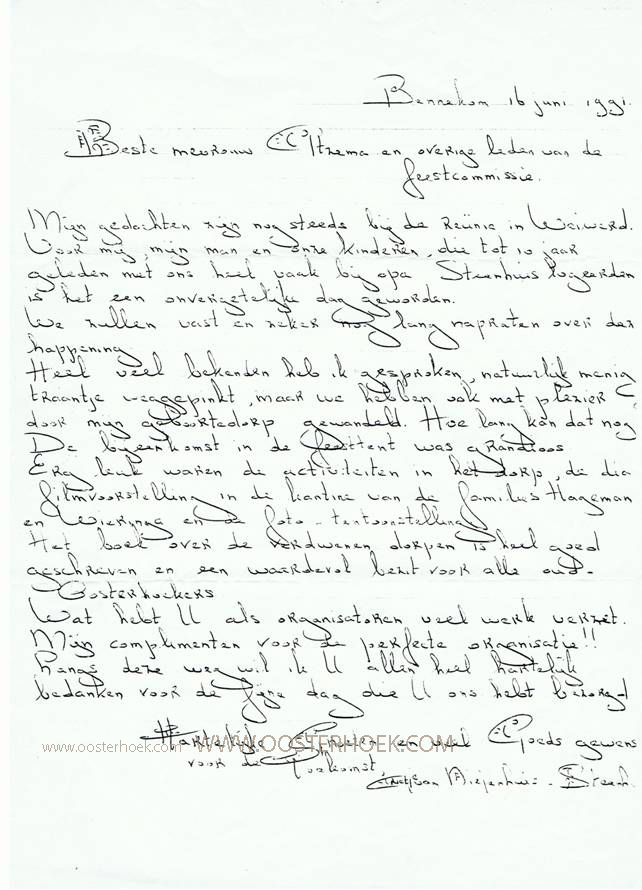 Bennekom 16 juni 1991.
Beste mevrouw Eltzema en overige leden van de
feestcommissie.
Mijn gedachten zijn nog steeds bij de reünie in Weiwerd.
Voor mij, mijn man en onze kinderen, die tot 10 jaar
geleden met ons heel vaak bij opa Steenhuis logeerden
is het een onvergetelijke dag geworden.
We zullen vast en zeker nog lang napraten over deze
happening.
Heel veel bekenden heb ik gesproken, natuurlijk menig
traantje weggepinkt, maar we hebben ook met plezier
door mijn geboortedorp gewandeld. Hoe lang kan dat nog
De bijeenkomst in de feesttent was grandioos
Erg leuk waren de activiteiten in het dorp, de dia
filmvoorstelling in de kantine van de families Hageman
en Wieringa en de foto-tentoonstelling
Het boek over de verdwenen dorpen is heel goed
geschreven en een waardevol bezit voor alle oud-
Oosterhoekers
Wat hebt U als organisatoren veel werk verzet.
Mijn complimenten voor de perfecte organisatie!!
Langs deze weg wil ik U allen heel hartelijk
bedanken voor de fijne dag die U ons hebt bezorgd
Hartelijke Groeten en veel Goeds gewenst
voor de Toekomst,
van Diepenhuis - Steenh.
www.oosterhoek.com WWW.OOSTERHOEK.COM